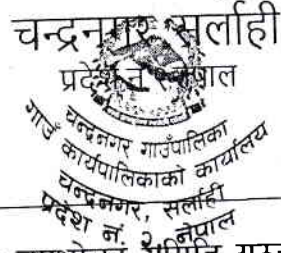 चन्द्रनगर सर्लाही
प्रदेश नं २ नेपाल
चन्द्रनगर गाउँपालिका
गाउँ कार्यपालिकाको कार्यालय
चन्द्रनगर, सर्लाही
प्रदेश नं. २ नेपाल